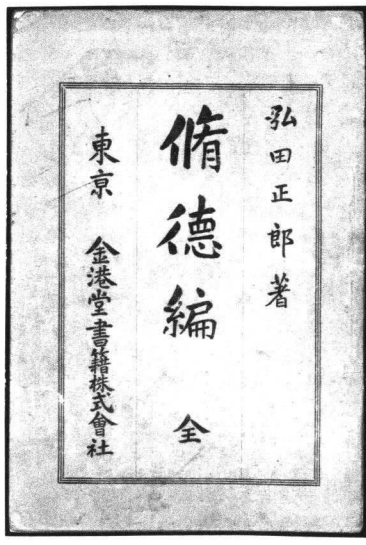 弘田正郎著
脩德編 全
東京 金港堂書籍株式會社